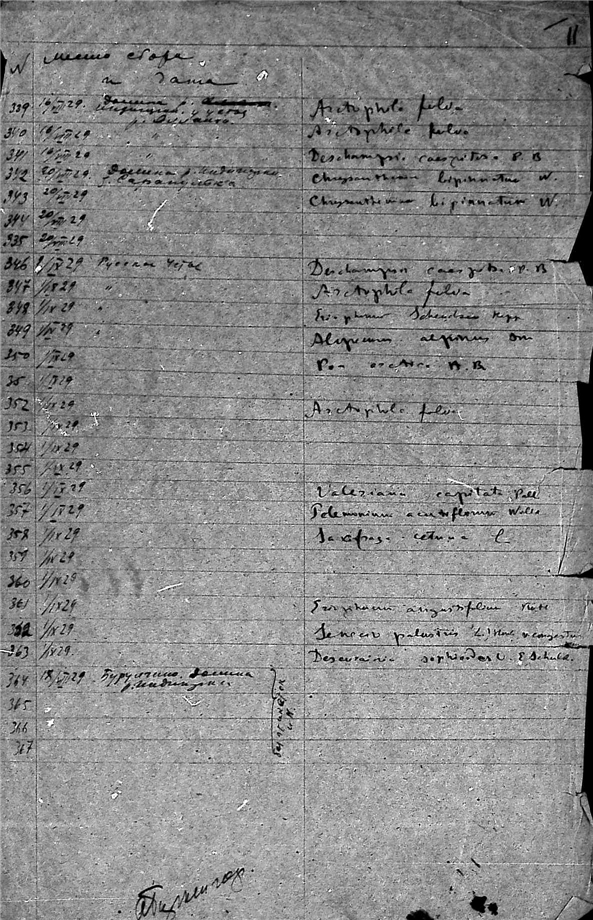 11
N место сбора
и дата
339 19/VIII 29. Долина р.
340 19/VIII 29 " Arctophila fulva
Arctophila fulva
341 19/VIII 29 " Deschampsia caespitosa P. B
342 20/VIII 29 Долина р. Индигирки Chrysanthemum bipinnatum W.
343 20/VIII 29 Chrysanthemum bipinnatum W.
344 20/VIII 29
335 20/VIII 29
346 1/IX 29 Русское Устье Deschampsia caespitosa P. B
347 1/IX 29 " Arctophila fulva
348 1/IX 29 " Eriophorum Scheuchzeri Hopp
349 1/IX 29 Alopecurus alpinus Sm
350 1/IX 29 Poa arctica R. B
35 1/IX 29
352 1/IX 29 Arctophila fulva
353 1/IX 29
354 1/IX 29
355 1/IX 29
356 1/IX 29 Valeriana capitata Pall
357 1/IX 29 Polemonium acutiflorum Willd
358 1/IX 29 Saxifraga cernua L
359 1/IX 29
360 1/IX 29
361 1/IX 29 Eriophorum angustifolium Roth
362 1/IX 29 Senecio palustris
363 1/IX 29. Descurainia sophioides O. E Schulz.
364 18/VII 29. Долина
р. Индигирки
365
366
367